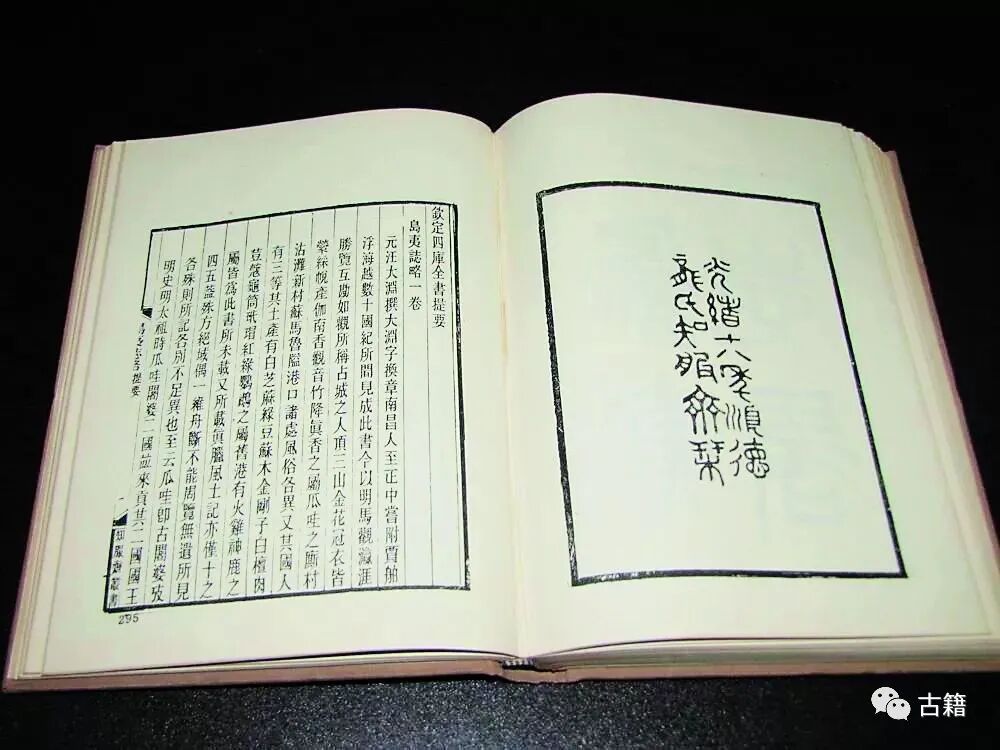 光緒六年順德
龍氏知服齋栞
欽定四庫全書提要
島夷誌略一卷
元汪大淵撰大淵字換章南昌人至正中嘗附賈舶
浮海越數十國紀所聞見成此書今以明馬觀瀛涯
勝覽互勘如觀所稱占城之人頂三山金花冠衣皆
縈綵帨產伽南香觀音竹降眞香之屬瓜哇之廝村
沽灘新村蘇馬魯隘港口諸處風俗各異又其國人
有三等其土產有白芝蔴綠豆蘇木金剛子白檀肉
荳蔻龜筒玳瑁紅綠鸚鵡之屬舊港有火雞神鹿之
屬皆爲此書所未載又所載眞臘風土記亦僅十之
四五蓋殊方絕域偶一維舟斷不能周覽無遺所見
各殊則所記各別不足異也至云瓜哇卽古闍婆攷
明史明太祖時瓜哇闍婆二國竝來貢其二國國王
提要
一
知服齋叢書
295
古籍